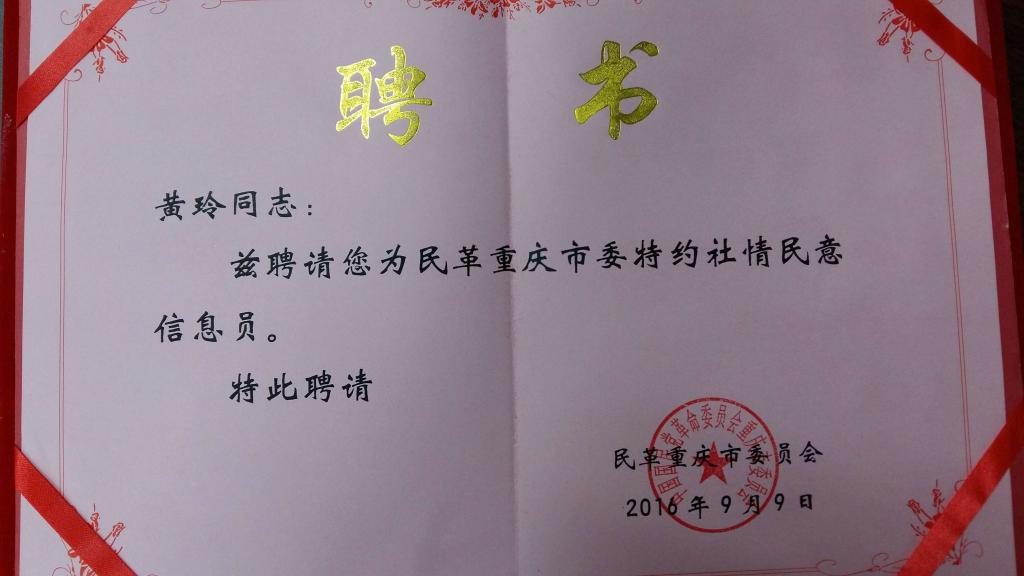 聘 书
黄玲同志：
兹聘请您为民革重庆市委特约社情民意
信息员。
特此聘请
民革重庆市委员会
2016年9月9日
中国国民党革命委员会重庆市委员会